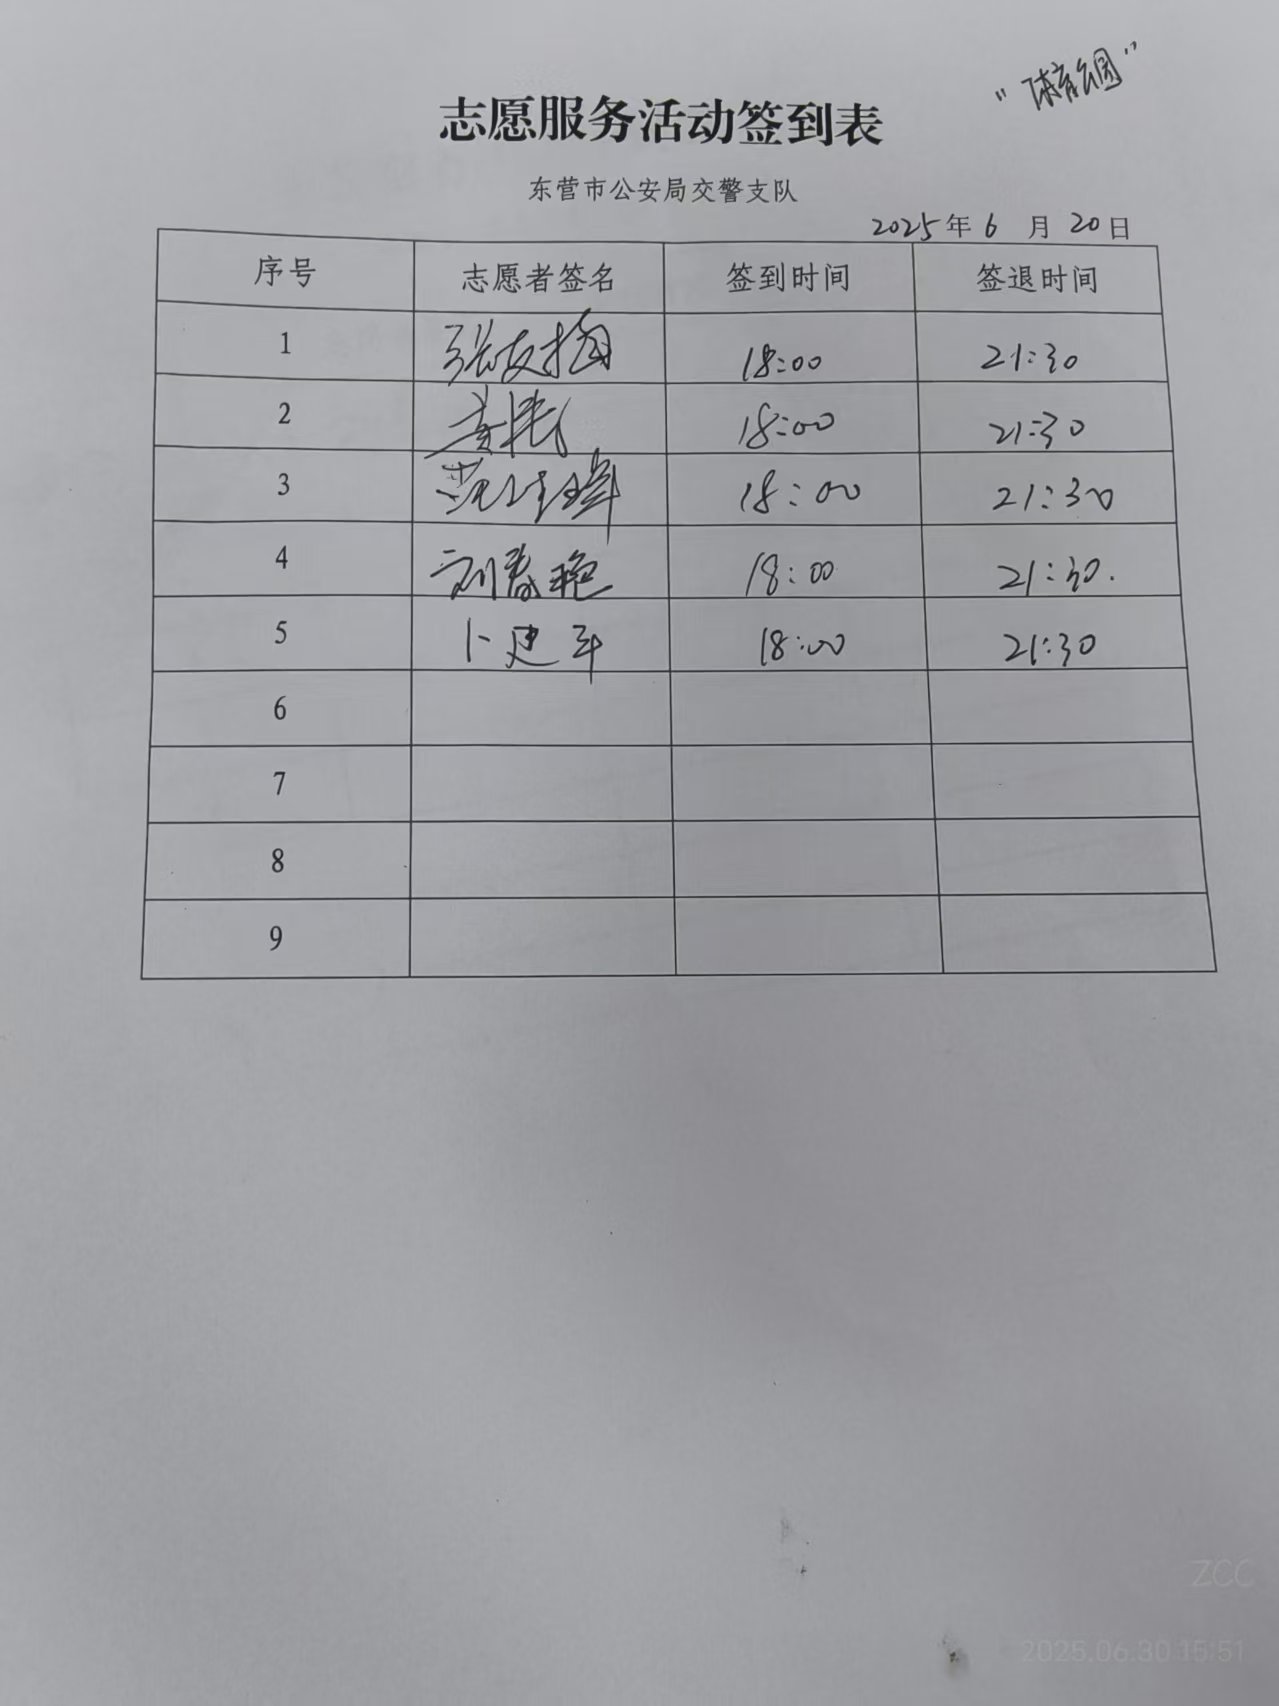 "体育公园"
志愿服务活动签到表
东营市公安局交警支队
2025年6月20日
序号 志愿者签名 签到时间 签退时间
1 张友梅 18:00 21:30
2 18:00 21:30
3 18:00 21:30
4 刘春艳 18:00 21:30.
5 卜建军 18:00 21:30
6
7
8
9
ZCC
2025.06.30 15:51